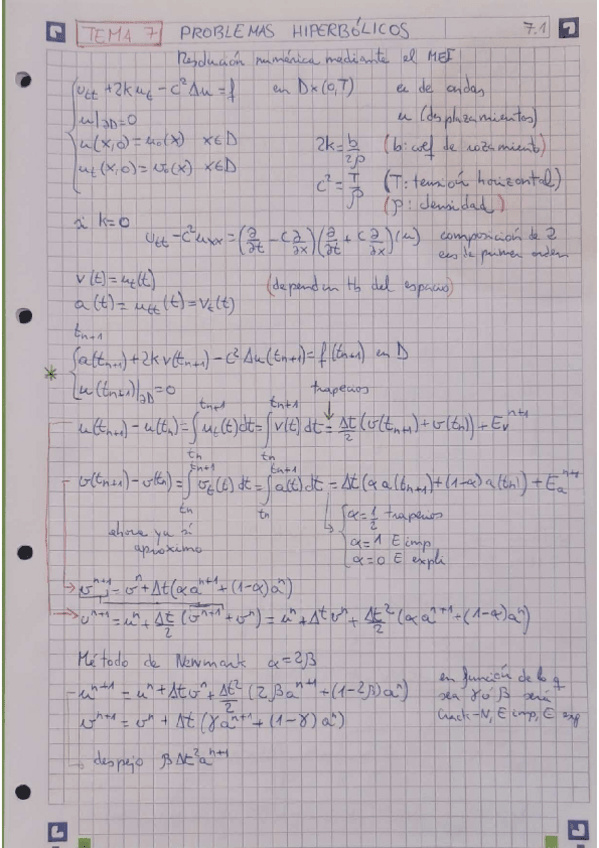 TEMA 7 PROBLEMAS HIPERBÓLICOS 7.1
Resolución numérica mediante el MEF
u_tt + 2k u_t - c²Δu = f en D×(0,T) ec de ondas
u|∂D = 0 u (desplazamientos)
u(x,0) = u₀(x) x∈D 2k = b/2ρ (b: coef de rozamiento)
u_t(x,0) = v₀(x) x∈D c² = T/ρ (T: tensión horizontal)
(ρ: densidad)
si k=0
u_tt - c²u_xx = (∂/∂t - c ∂/∂x)(∂/∂t + c ∂/∂x)(u) composición de 2
ecs de primer orden
v(t) = u_t(t) (dependen tb del espacio)
a(t) = u_tt(t) = v_t(t)
t_n+1
* a(t_n+1) + 2k v(t_n+1) - c²Δu(t_n+1) = f(t_n+1) en D
u(t_n+1)|∂D = 0 trapecios
u(t_n+1) - u(t_n) = ∫_tn^tn+1 u_t(t) dt = ∫_tn^tn+1 v(t) dt = Δt/2 (v(t_n+1) + v(t_n)) + E_v^n+1
v(t_n+1) - v(t_n) = ∫_tn^tn+1 v_t(t) dt = ∫_tn^tn+1 a(t) dt = Δt (α a(t_n+1) + (1-α) a(t_n)) + E_a^n+1
ahora ya sí
aproximo
α = 1/2 trapecios
α = 1 E imp
α = 0 E expli
v^n+1 = v^n + Δt(α a^n+1 + (1-α) a^n)
u^n+1 = u^n + Δt/2 (v^n+1 + v^n) = u^n + Δt v^n + Δt²/2 (α a^n+1 + (1-α) a^n)
Método de Newmark α = 2β
- u^n+1 = u^n + Δt v^n + Δt²/2 (2β a^n+1 + (1-2β) a^n)
v^n+1 = v^n + Δt (γ a^n+1 + (1-γ) a^n)
en función de lo q
sea γ ó β será
Crack-N, E imp, E exp
→ despejo β Δt² a^n+1